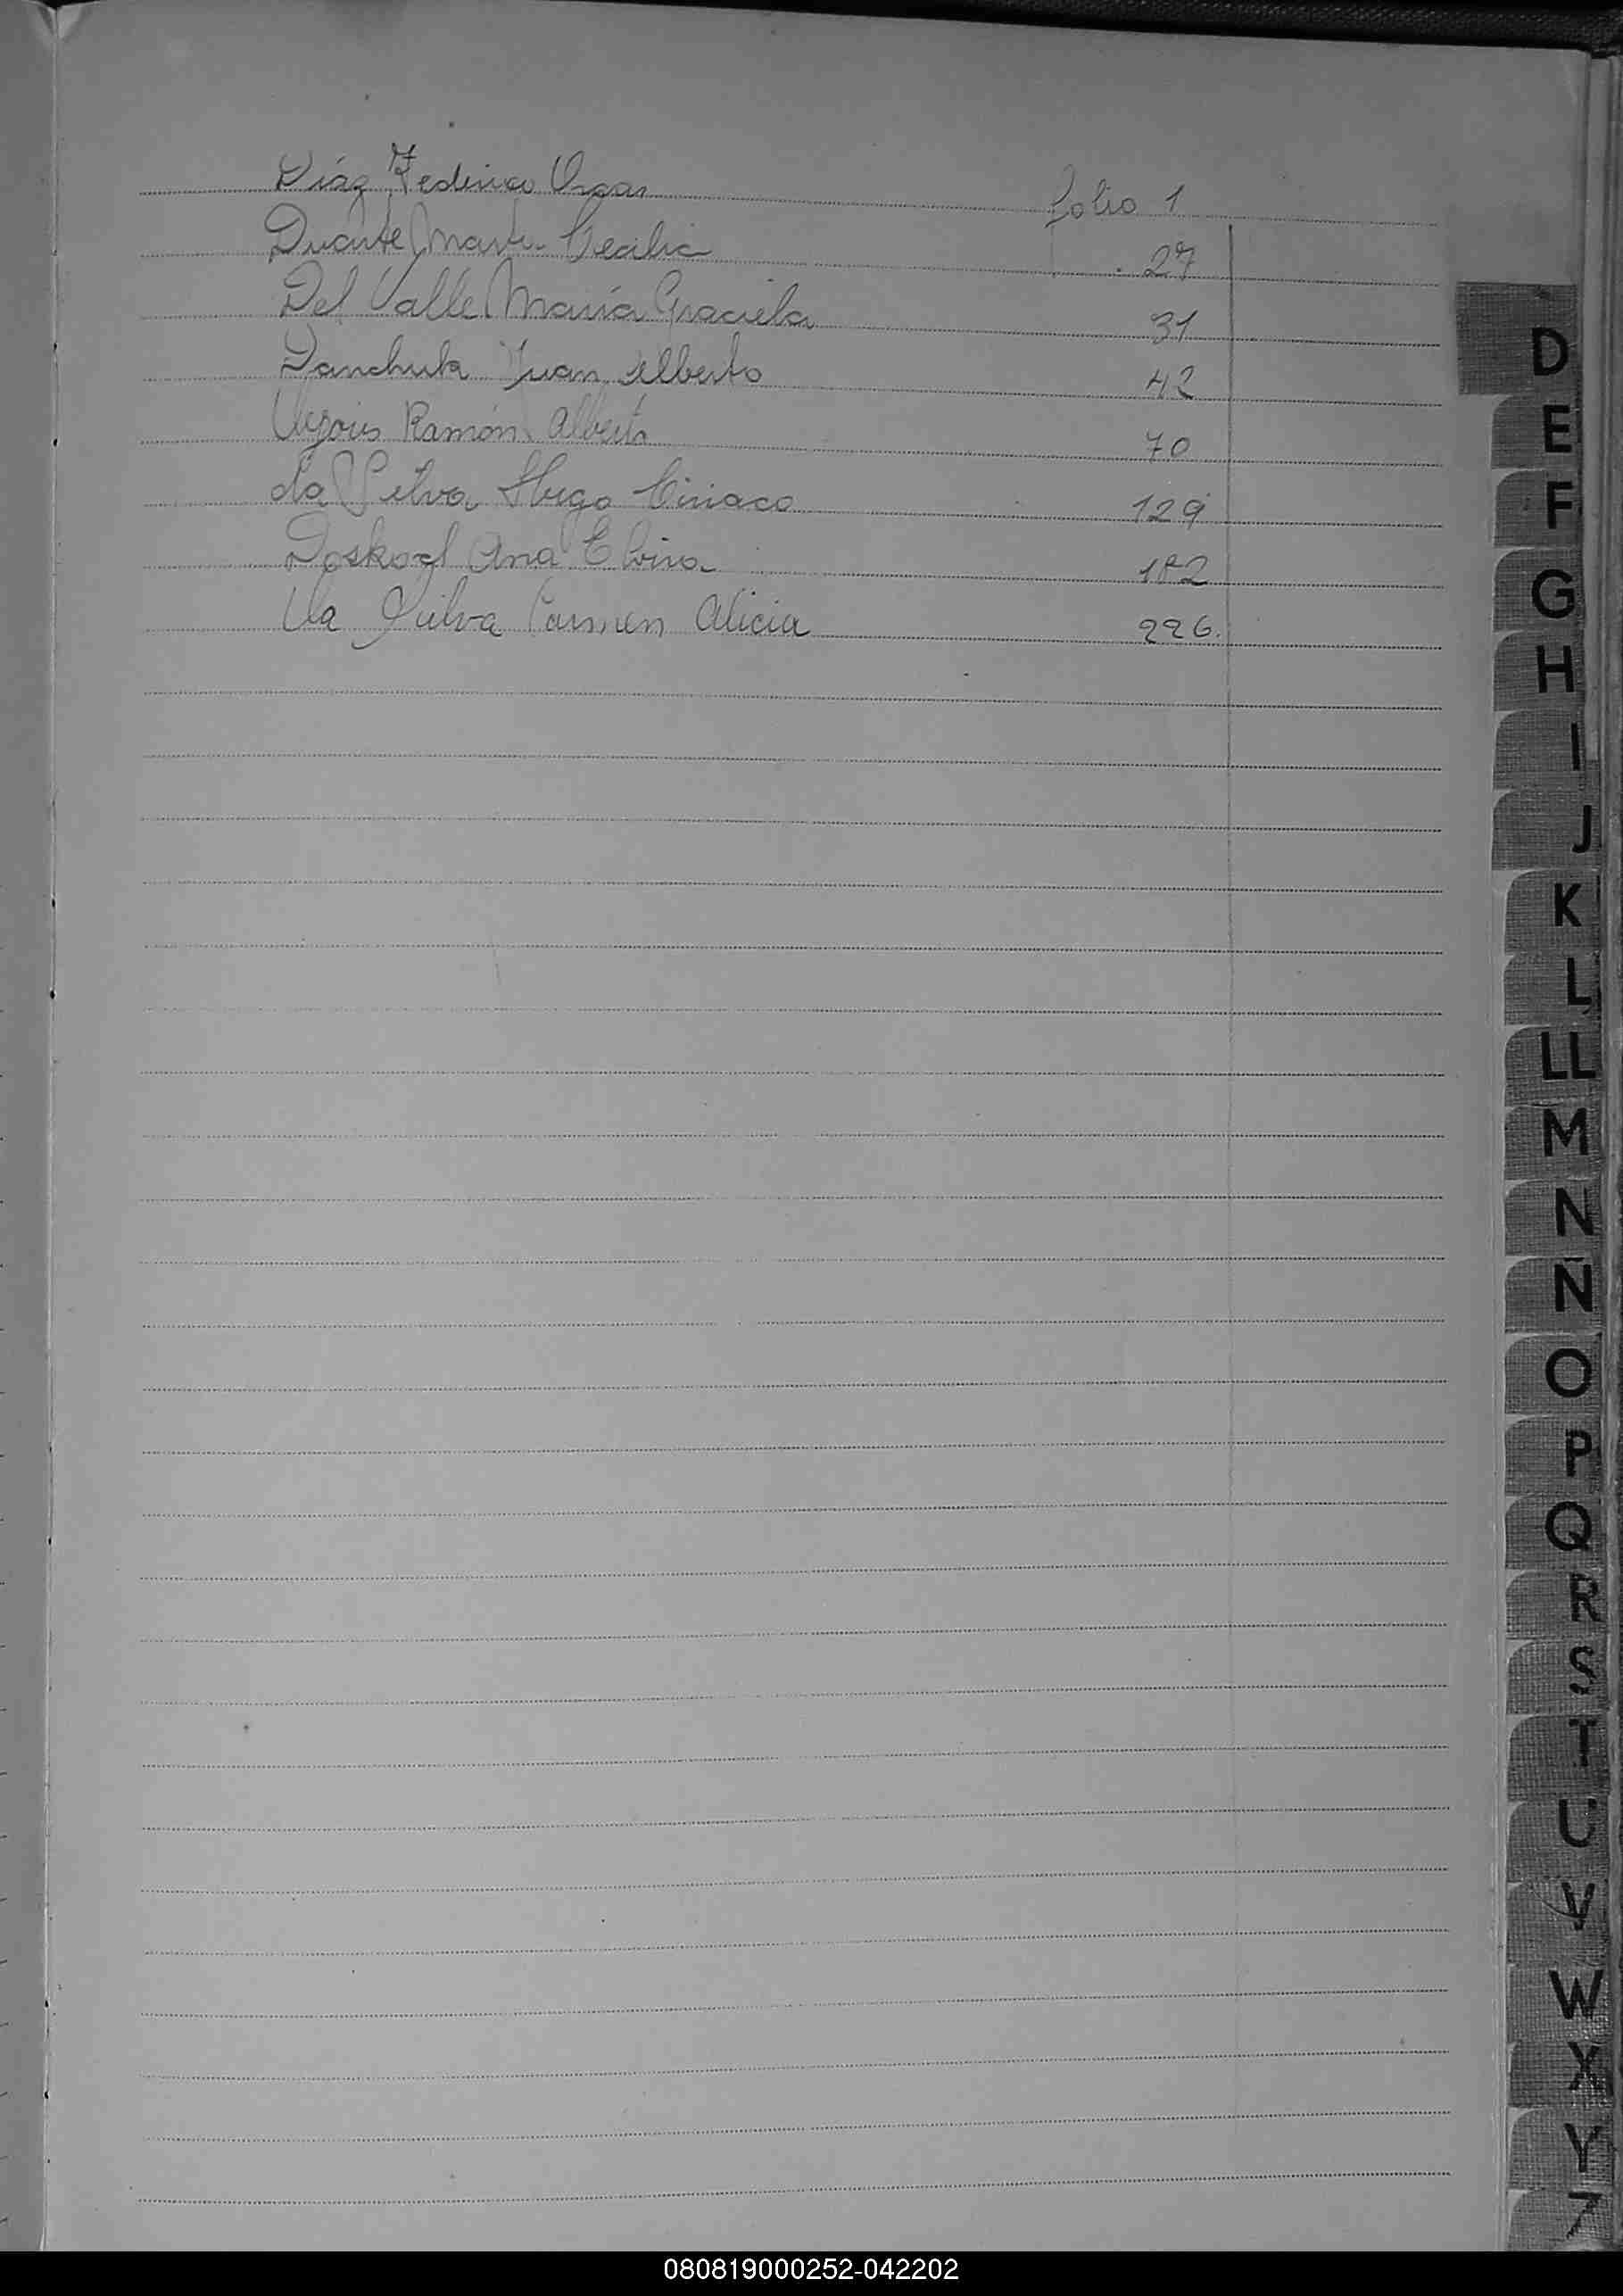 Díaz Federico Oscar folio 1
Duarte Marta Cecilia 27
Del Valle María Graciela 31
Danchuk Juan Alberto 42
Ramón Alberto 70
da Silva Hugo Ciriaco 129
Ana Elvira 182
Da Silva Carmen Alicia 226.
D
E
F
G
H
I
J
K
L
LL
M
N
N
O
P
Q
R
S
T
U
V
W
X
Y
Z
080819000252-042202